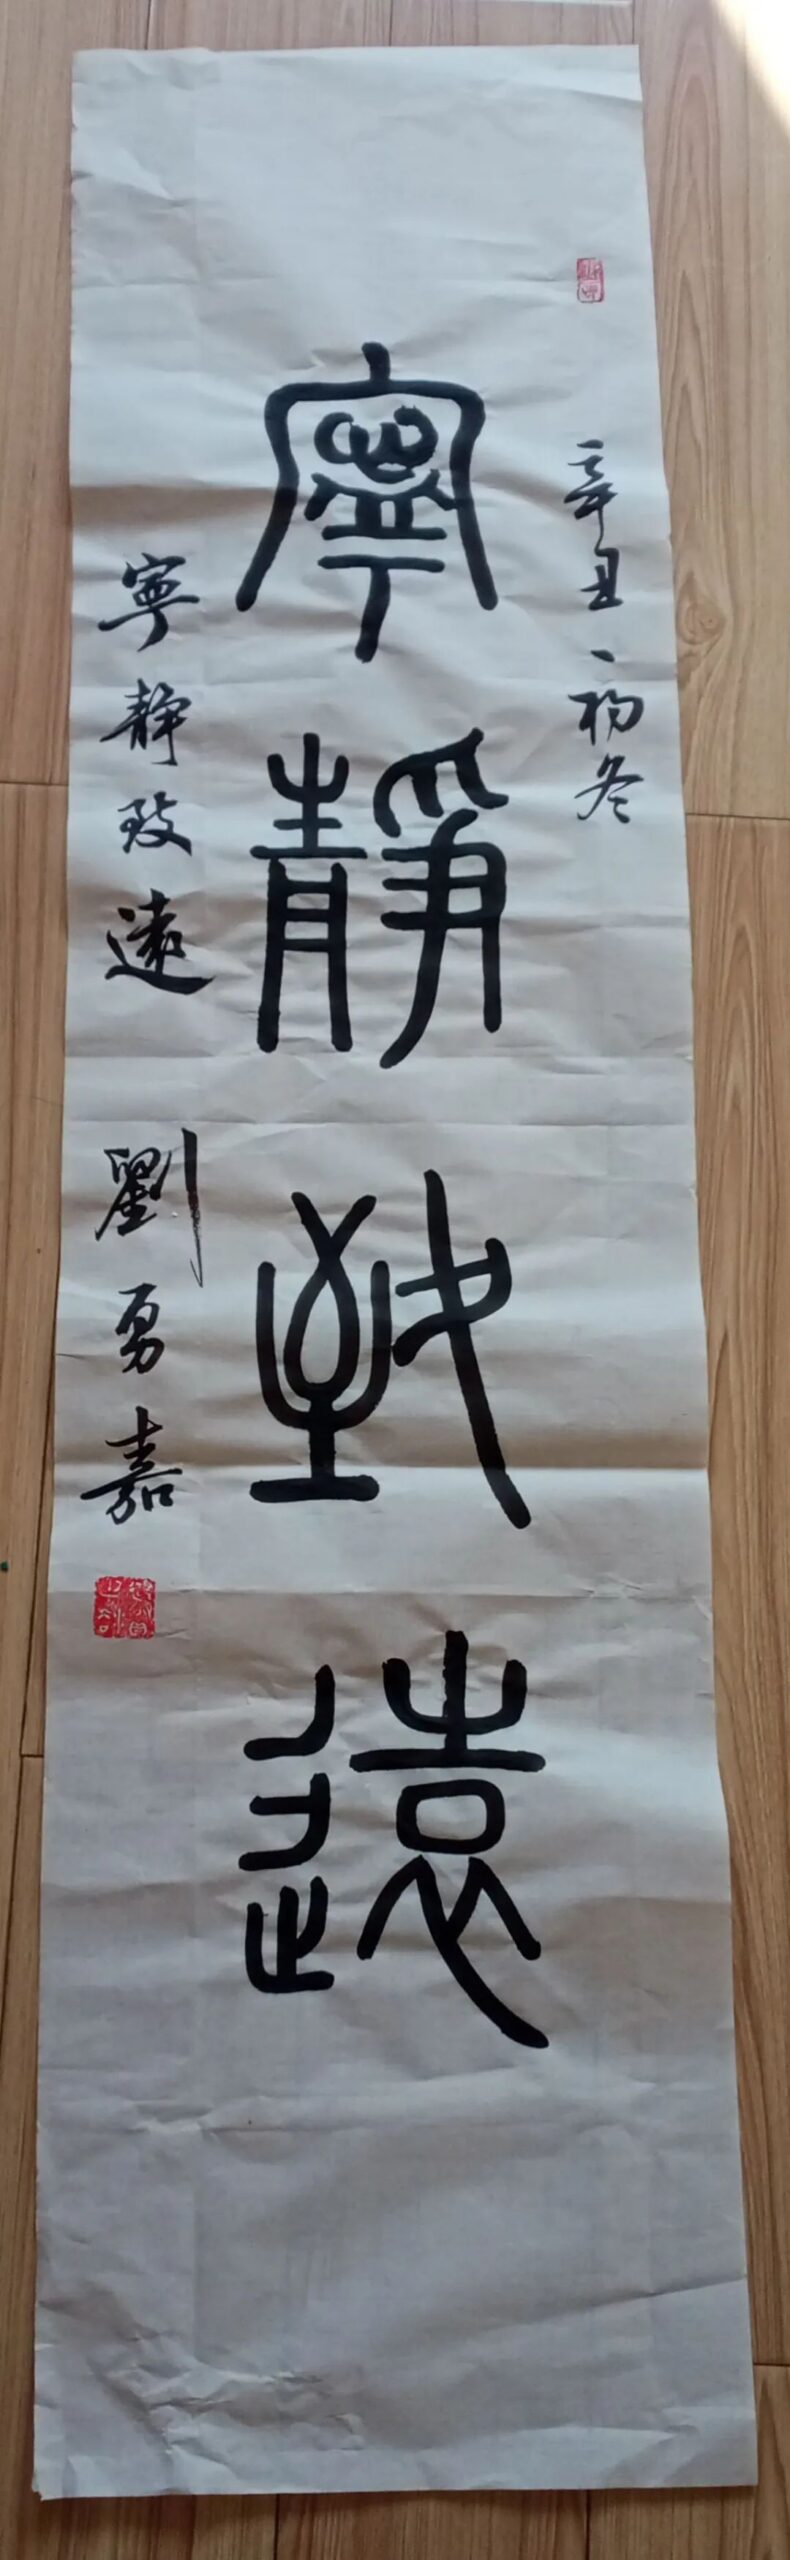 辛丑初冬
寧靜致遠
寧靜致遠 劉勇嘉